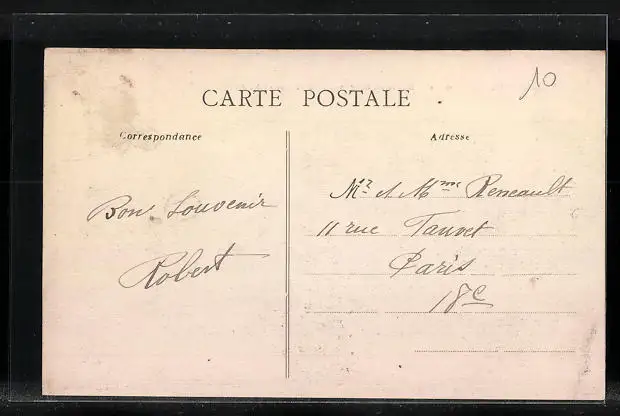 10
CARTE POSTALE
Correspondance
Adresse
Bon Souvenir
Robert
Mr et Mme Reneault
11 rue Tanvet
Paris
18e